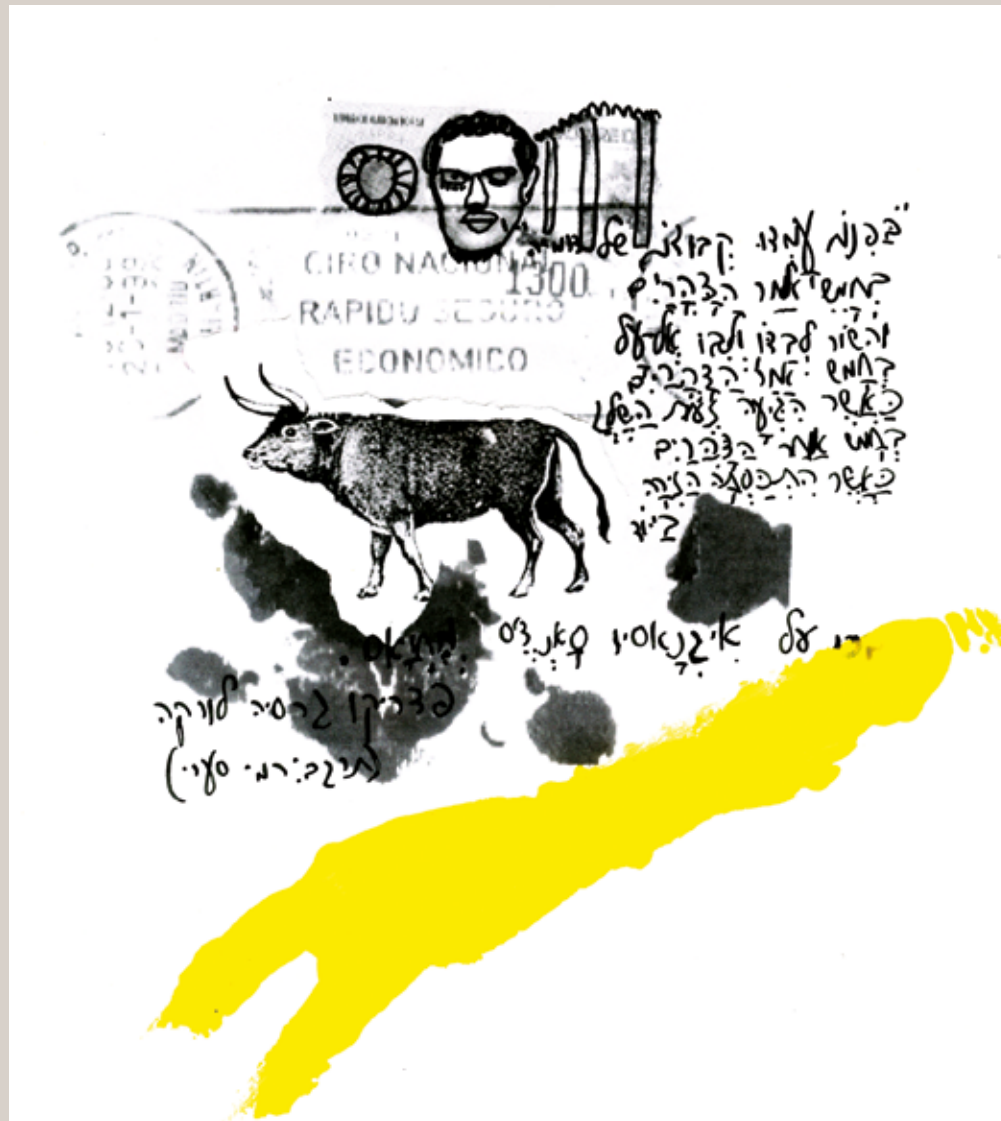 CIRO NACIONAL
1300
RAPIDO SEGURO
ECONOMICO
"בפנות עמדו קבוצות של דומיה
בחמש אחר הצהרים
והשור לבדו ולבו אל על
בחמש אחר הצהרים
כאשר הגיעה זעת השלג
בחמש אחר הצהרים
כאשר התכסתה הזירה
ביוד
על איגנאסיו סאנצ'ס
פדריקו גרסיה לורקה
רמי סערי)